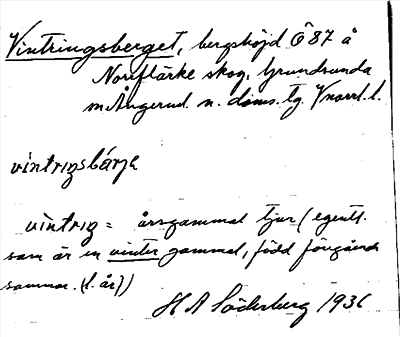 Vintringsberget, bergshöjd Ö 87 å
Norrflärke skog, Grundsunda
m. Ångerml. n. doms. tg. Vnorrl. l.
vintriŋsbárjə
vintriŋ = årsgammal tjur (egentl.
som är en vinter gammal, född föregående
sommar. (l. år))
H A Söderberg 1936